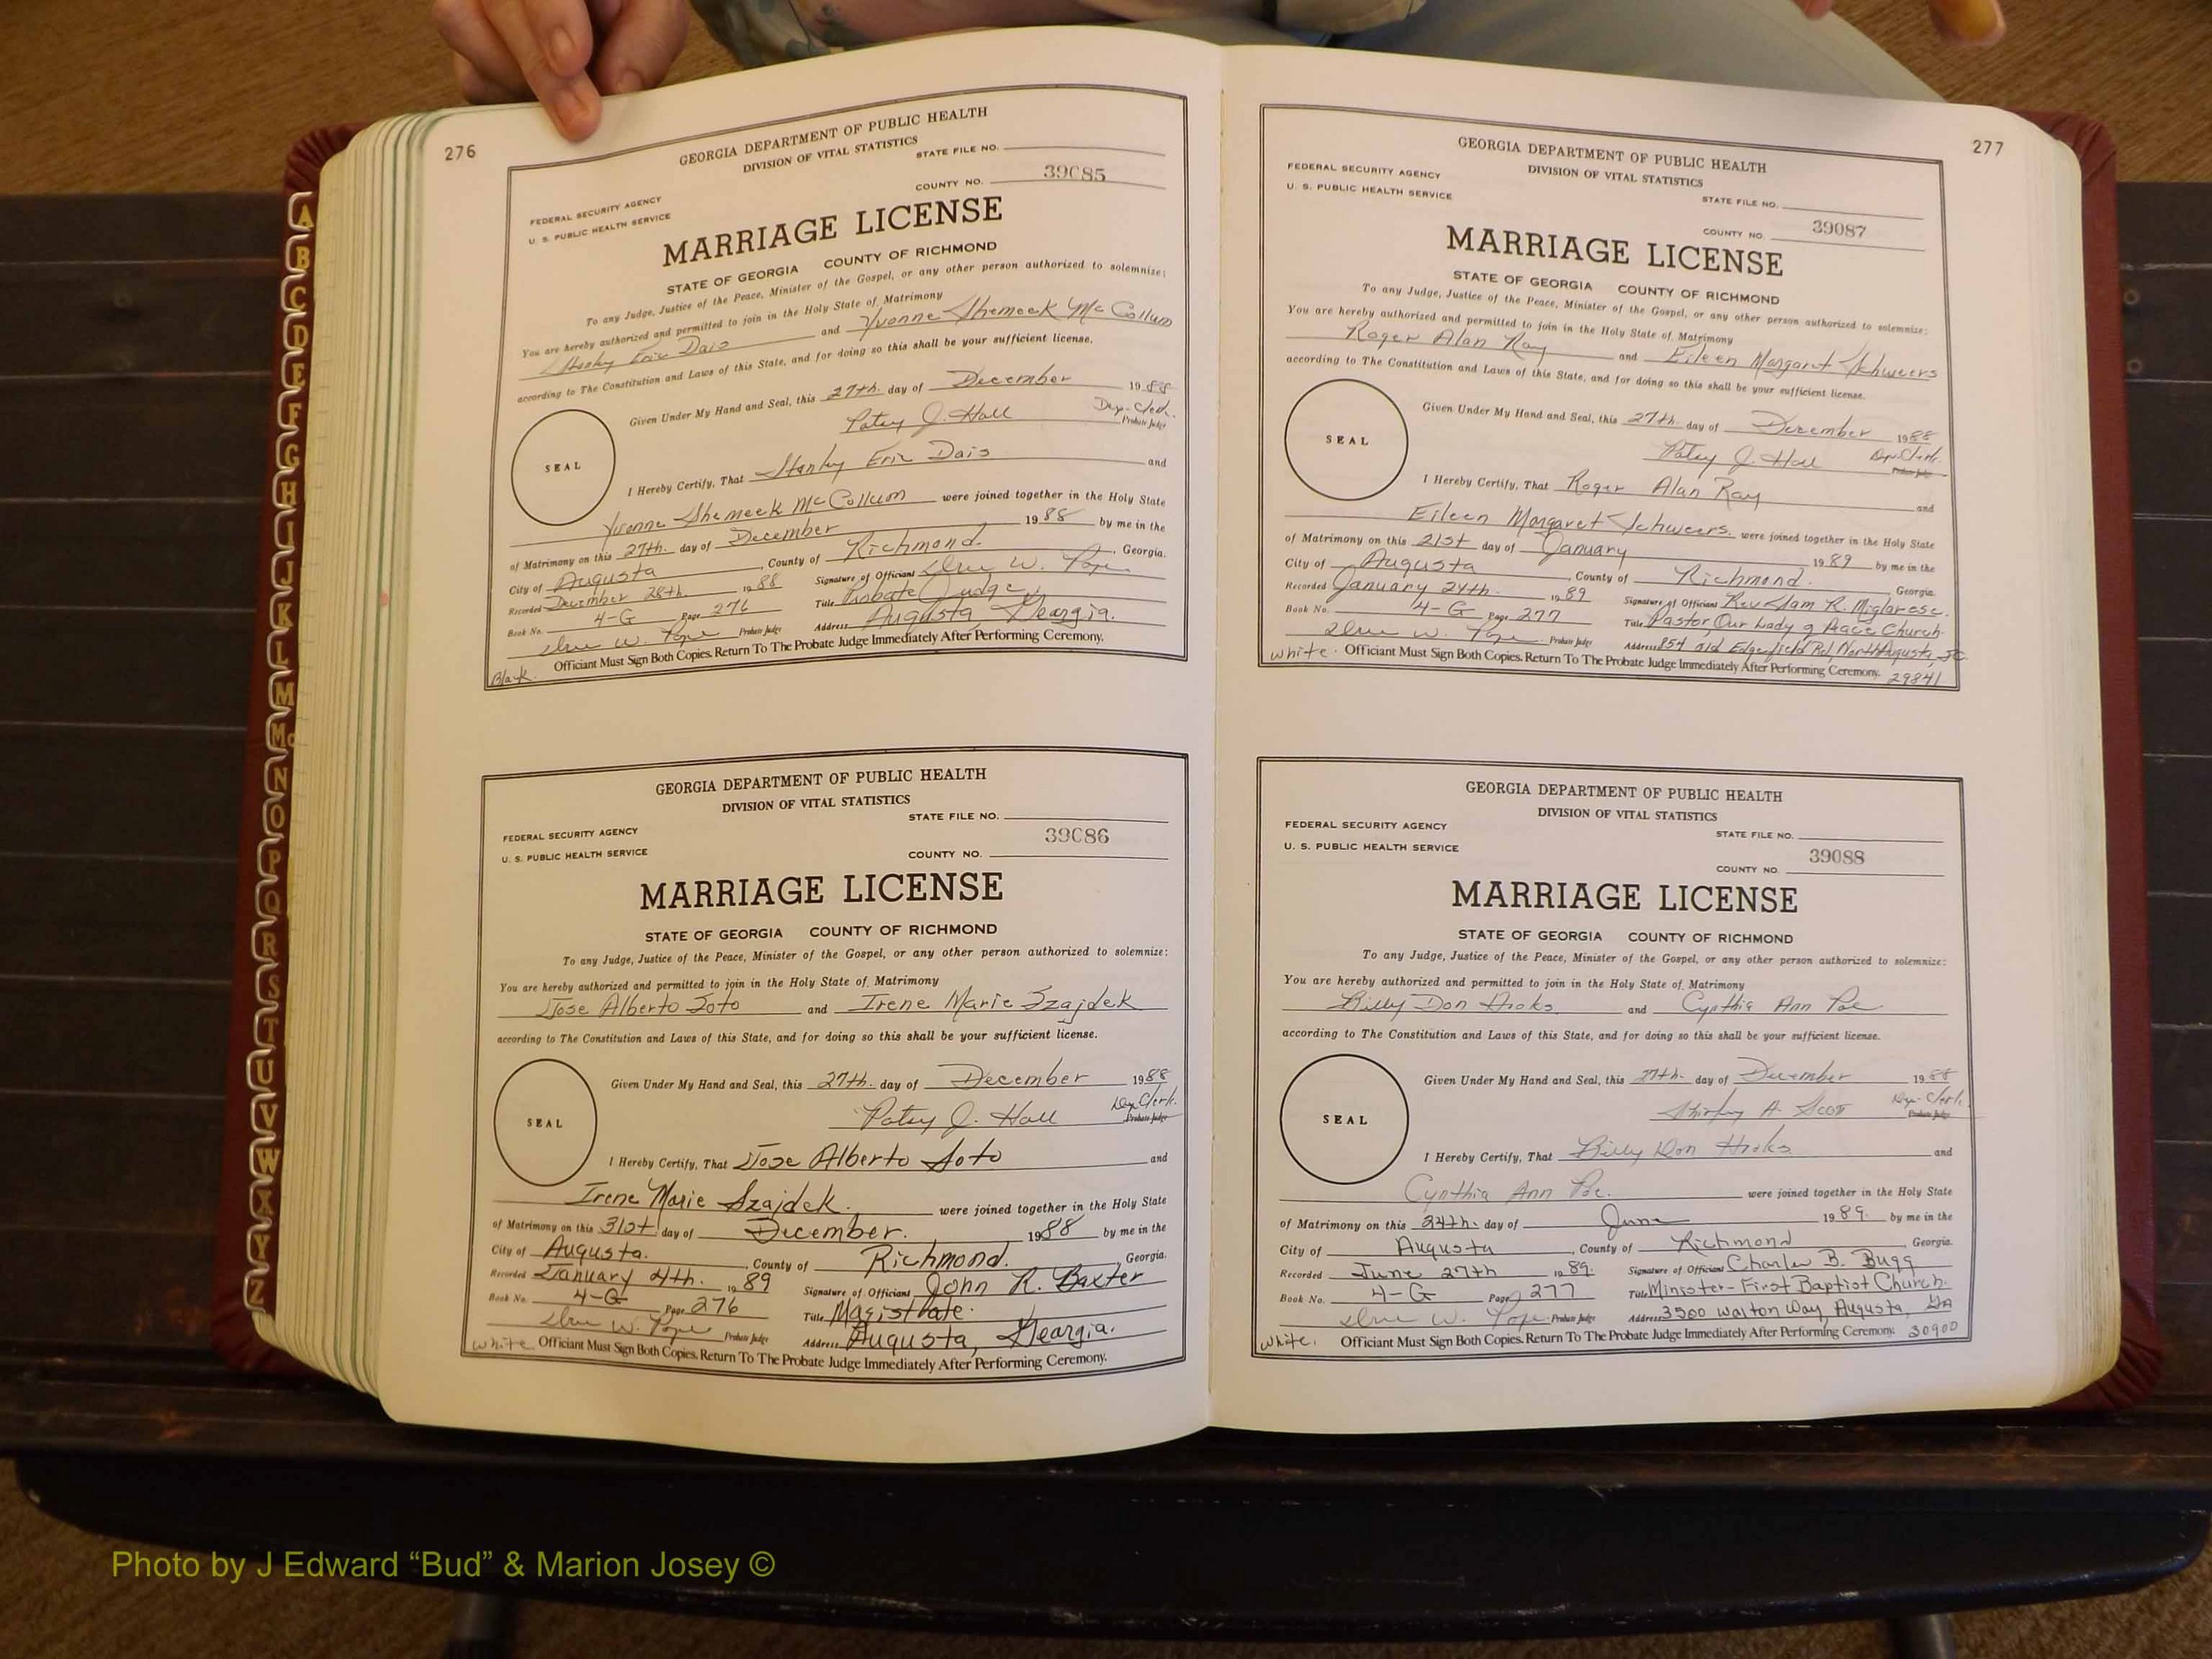 276
GEORGIA DEPARTMENT OF PUBLIC HEALTH
DIVISION OF VITAL STATISTICS
STATE FILE NO.
39085
COUNTY NO.
FEDERAL SECURITY AGENCY
U. S. PUBLIC HEALTH SERVICE
MARRIAGE LICENSE
STATE OF GEORGIA COUNTY OF RICHMOND
To any Judge, Justice of the Peace, Minister of the Gospel, or any other person authorized to solemnize:
You are hereby authorized and permitted to join in the Holy State of Matrimony
Stanley Eric Dais and Yvonne Shemeek McCollum
according to The Constitution and Laws of this State, and for doing so this shall be your sufficient license.
Given Under My Hand and Seal, this 27th. day of December 1988
Patsy J. Hall Dep-Clerk.
Probate Judge
SEAL
I Hereby Certify, That Stanley Eric Dais and
Yvonne Shemeek McCollum were joined together in the Holy State
of Matrimony on this 27th. day of December 1988 by me in the
City of Augusta, County of Richmond., Georgia.
Recorded December 28th. 1988 Signature of Officiant W. Pope
Book No. 4-G Page 276 Title Probate Judge,
W. Pope Probate Judge Address Augusta, Georgia.
Black. Officiant Must Sign Both Copies. Return To The Probate Judge Immediately After Performing Ceremony.
GEORGIA DEPARTMENT OF PUBLIC HEALTH
DIVISION OF VITAL STATISTICS
STATE FILE NO.
39086
COUNTY NO.
FEDERAL SECURITY AGENCY
U. S. PUBLIC HEALTH SERVICE
MARRIAGE LICENSE
STATE OF GEORGIA COUNTY OF RICHMOND
To any Judge, Justice of the Peace, Minister of the Gospel, or any other person authorized to solemnize:
You are hereby authorized and permitted to join in the Holy State of Matrimony
Jose Alberto Soto and Irene Marie Szajdek
according to The Constitution and Laws of this State, and for doing so this shall be your sufficient license.
Given Under My Hand and Seal, this 27th. day of December 1988
Patsy J. Hall Dep Clerk.
Probate Judge
SEAL
I Hereby Certify, That Jose Alberto Soto and
Irene Marie Szajdek. were joined together in the Holy State
of Matrimony on this 31st day of December. 1988 by me in the
City of Augusta., County of Richmond., Georgia.
Recorded January 4th. 1989 Signature of Officiant John R. Baxter
Book No. 4-G Page 276 Title Magistrate.
W. Pope Probate Judge Address Augusta, Georgia.
White Officiant Must Sign Both Copies. Return To The Probate Judge Immediately After Performing Ceremony.
277
GEORGIA DEPARTMENT OF PUBLIC HEALTH
DIVISION OF VITAL STATISTICS
FEDERAL SECURITY AGENCY
U. S. PUBLIC HEALTH SERVICE
STATE FILE NO.
39087
COUNTY NO.
MARRIAGE LICENSE
STATE OF GEORGIA COUNTY OF RICHMOND
To any Judge, Justice of the Peace, Minister of the Gospel, or any other person authorized to solemnize:
You are hereby authorized and permitted to join in the Holy State of Matrimony
Roger Alan Ray and Eileen Margaret Schweers
according to The Constitution and Laws of this State, and for doing so this shall be your sufficient license.
Given Under My Hand and Seal, this 27th. day of December 1988
Patsy J. Hall Dep. Clerk.
Probate Judge
SEAL
I Hereby Certify, That Roger Alan Ray and
Eileen Margaret Schweers. were joined together in the Holy State
of Matrimony on this 21st day of January 1989 by me in the
City of Augusta, County of Richmond. Georgia.
Recorded January 24th. 1989 Signature of Officiant Rev Sam R. Miglarese.
Book No. 4-G Page 277 Title Pastor, Our Lady of Peace Church.
W. Pope Probate Judge Address 854 old Edgefield Rd, North Augusta, SC
White. Officiant Must Sign Both Copies. Return To The Probate Judge Immediately After Performing Ceremony. 29841
GEORGIA DEPARTMENT OF PUBLIC HEALTH
DIVISION OF VITAL STATISTICS
FEDERAL SECURITY AGENCY
U. S. PUBLIC HEALTH SERVICE
STATE FILE NO.
39088
COUNTY NO.
MARRIAGE LICENSE
STATE OF GEORGIA COUNTY OF RICHMOND
To any Judge, Justice of the Peace, Minister of the Gospel, or any other person authorized to solemnize:
You are hereby authorized and permitted to join in the Holy State of Matrimony
Billy Don Hooks and Cynthia Ann Poe
according to The Constitution and Laws of this State, and for doing so this shall be your sufficient license.
Given Under My Hand and Seal, this 27th. day of December 1988
Shirley A. Scott Dep. Clerk.
Probate Judge
SEAL
I Hereby Certify, That Billy Don Hooks and
Cynthia Ann Poe. were joined together in the Holy State
of Matrimony on this 24th. day of June 1989. by me in the
City of Augusta, County of Richmond Georgia.
Recorded June 27th 1989. Signature of Officiant Charles B. Bugg
Book No. 4-G Page 277 Title Minister-First Baptist Church.
W. Pope Probate Judge Address 3500 Walton Way, Augusta, GA
White. Officiant Must Sign Both Copies. Return To The Probate Judge Immediately After Performing Ceremony. 30900
A
B
C
D
E
F
G
H
I
J
K
L
M
Mc
N
O
P
Q
R
S
T
U
V
W
X
Y
Z
Photo by J Edward “Bud” & Marion Josey ©